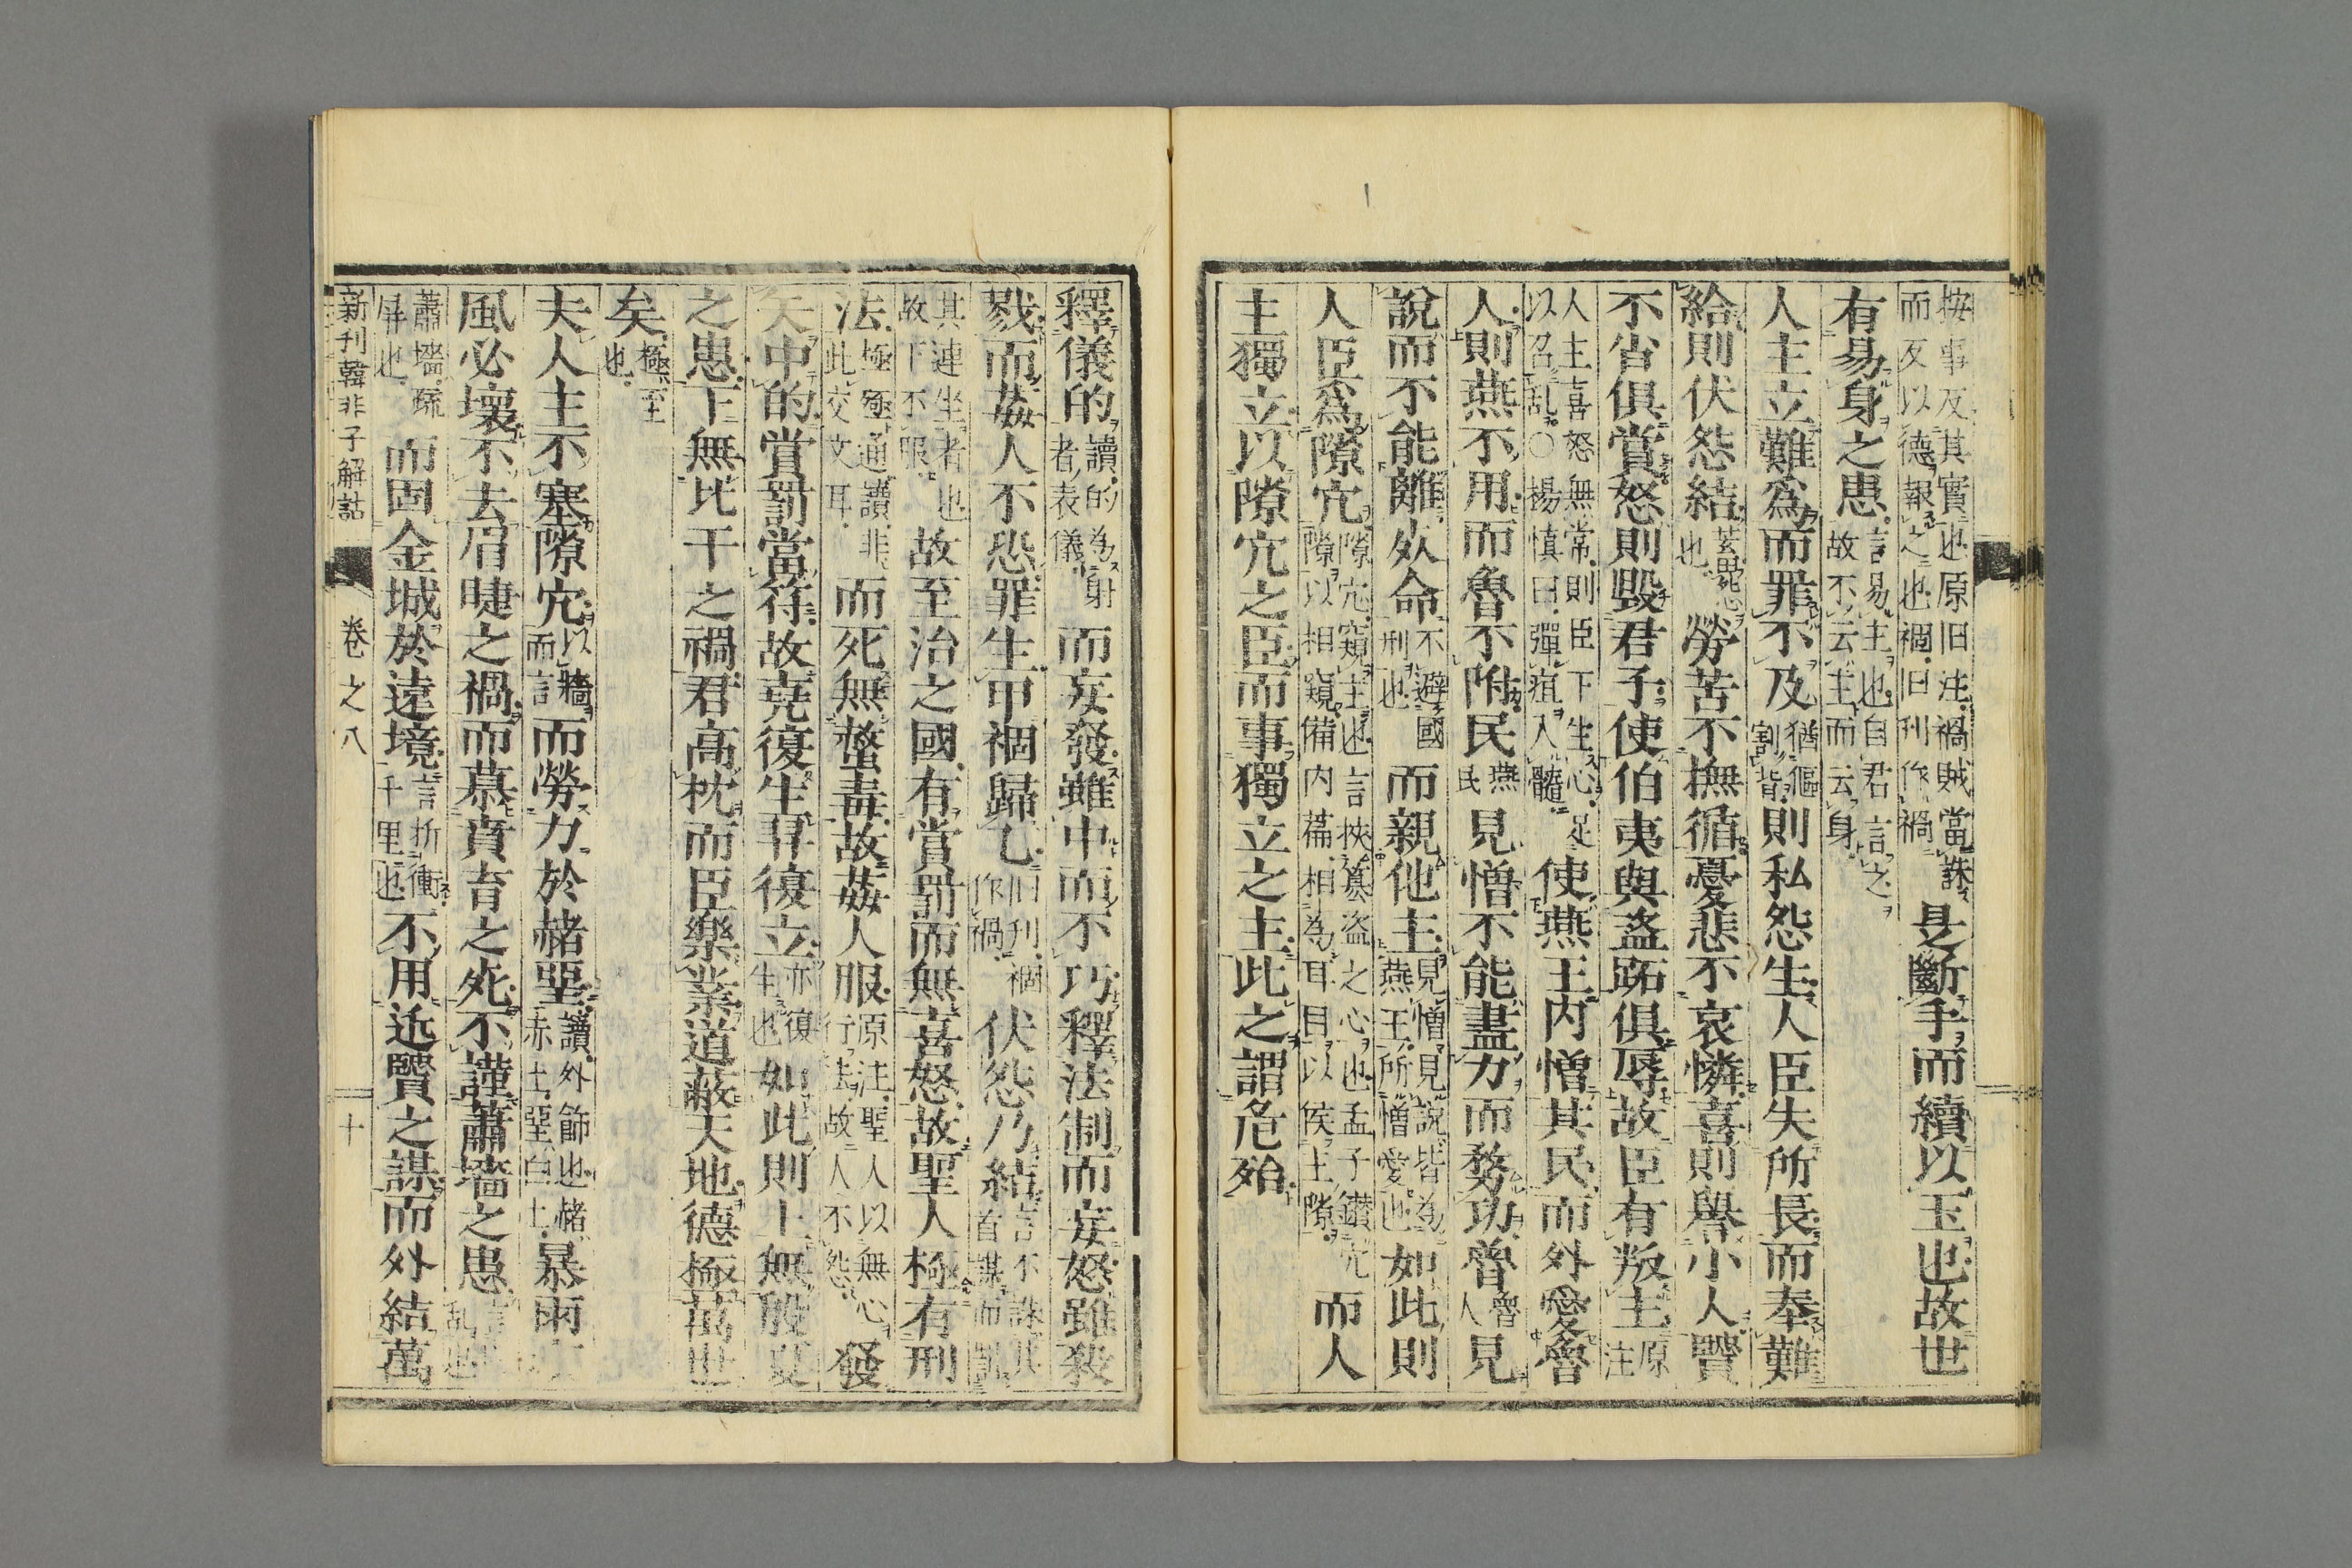 按事反其實也原旧注禍賊當誅
而反以德報之也禍旧刋作禍
是斷手而續以玉也故世
有易身之患
言易主也自君言之
故不云主而云身
人主立難爲而罪不及
猶傴
割背
則私怨生人臣失所長而奉難
給則伏怨結
也
勞苦不撫循憂悲不哀憐喜則譽小人賢
不省俱賞怒則毀君子使伯夷與盗跖俱辱故臣有叛主
原
注
人主喜怒無常則臣下生心足
以召乱○楊慎曰彈疽人髓
使燕王内憎其民而外愛魯
人則燕不用而魯不附民
燕
民
見憎不能盡力而務功魯
魯
人
見
說而不能離死命
不避國
刑也
而親他主
見憎見說皆為
燕王所憎愛也
如此則
人臣爲隙穴
隙穴窺主也言挾簒盗之心也孟子鑚穴
隙以相窺備内篇相為耳目以俟主隙
而人
主獨立以隙穴之臣而事獨立之主此之謂危殆
釋儀的
讀的為射
者表儀
而妄發雖中而不巧釋法制而妄怒雖殺
戮而姦人不恐罪生甲禍歸乙
旧刋禍
作禍
伏怨乃結
言不誅其
首謀而
其連坐者也
故下不服
故至治之國有賞罰而無喜怒故聖人極有刑
法
極殛通讀非
此交文耳
而死無螫毒故姦人服
原注聖人以無心
行法故人不怨
發
矢中的賞罰當符故堯復生羿復立
亦復
生也
如此則上無殷夏
之患下無比干之禍君高枕而臣樂業道蔽天地德極萬世
矣
極至
也
夫人主不塞隙穴
以牆
而言
而勞力於赭堊
讀外飾也赭
赤土堊白土
暴雨疾
風必壞不去眉睫之禍而慕賁育之死不謹蕭墻之患
蕭墻疏
屏也
而固金城於遠境
言折衝
千里也
不用近賢之謀而外結萬
新刊韓非子解詁
卷之八
十